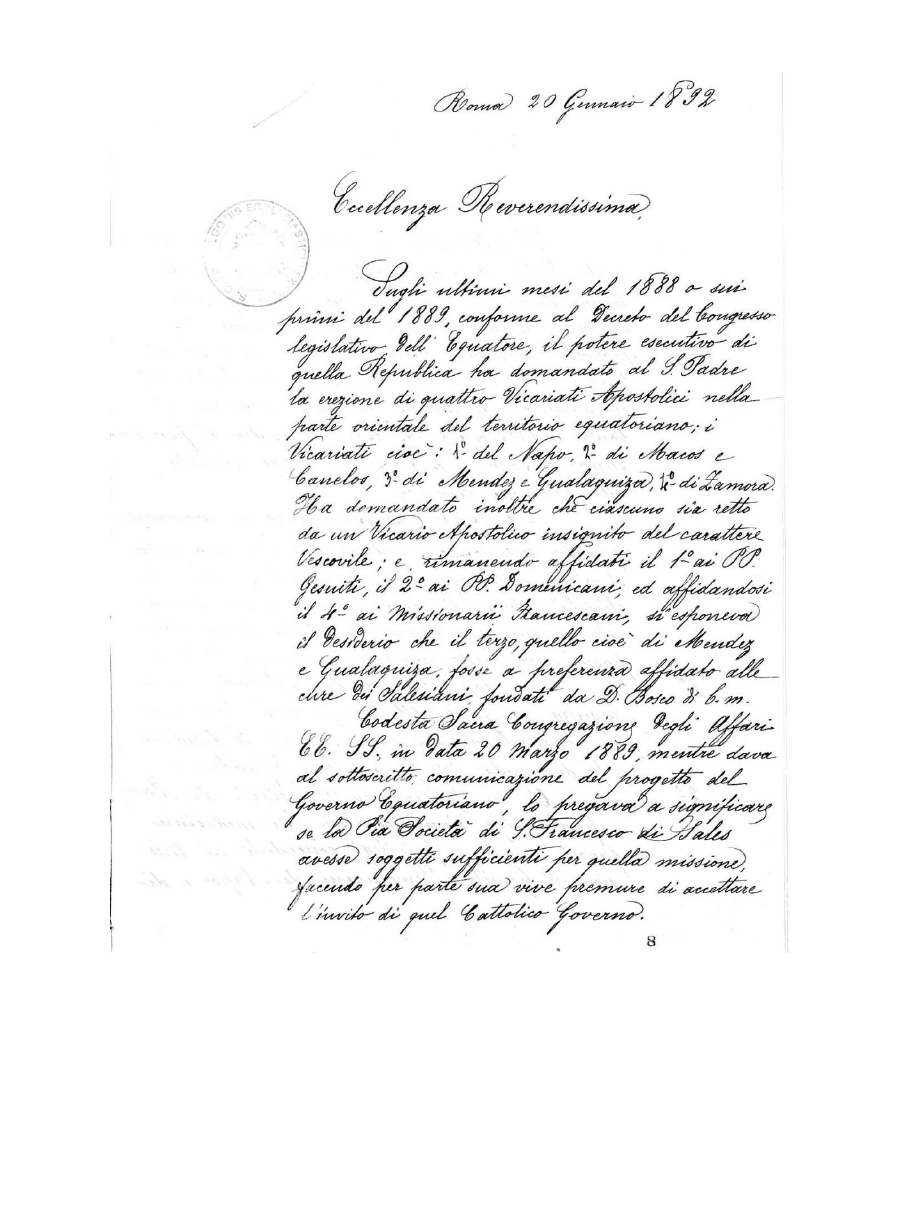 Roma 20 Gennaio 1892
Eccellenza Reverendissima,
Sugli ultimi mesi del 1888 o sui
primi del 1889, conforme al Decreto del Congresso
legislativo dell' Equatore, il potere esecutivo di
quella Republica ha domandato al S. Padre
la erezione di quattro Vicariati Apostolici nella
parte orientale del territorio equatoriano; i
Vicariati cioè: 1º del Napo, 2º di Macos e
Canelos, 3º di Mendez e Gualaquiza, 4º di Zamora.
Ha domandato inoltre che ciascuno sia retto
da un Vicario Apostolico insignito del carattere
Vescovile; e, rimanendo affidati il 1º ai PP.
Gesuiti, il 2º ai PP. Domenicani, ed affidandosi
il 4º ai Missionarii Francescani, si esponeva
il desiderio che il terzo, quello cioè di Mendez
e Gualaquiza, fosse a preferenza affidato alle
cure dei Salesiani, fondati da D. Bosco di b. m.
Codesta Sacra Congregazione degli Affari
EE. SS., in data 20 Marzo 1889, mentre dava
al sottoscritto comunicazione del progetto del
Governo Equatoriano, lo pregava a significare
se la Pia Società di S. Francesco di Sales
avesse soggetti sufficienti per quella missione,
facendo per parte sua vive premure di accettare
l'invito di quel Cattolico Governo.
8